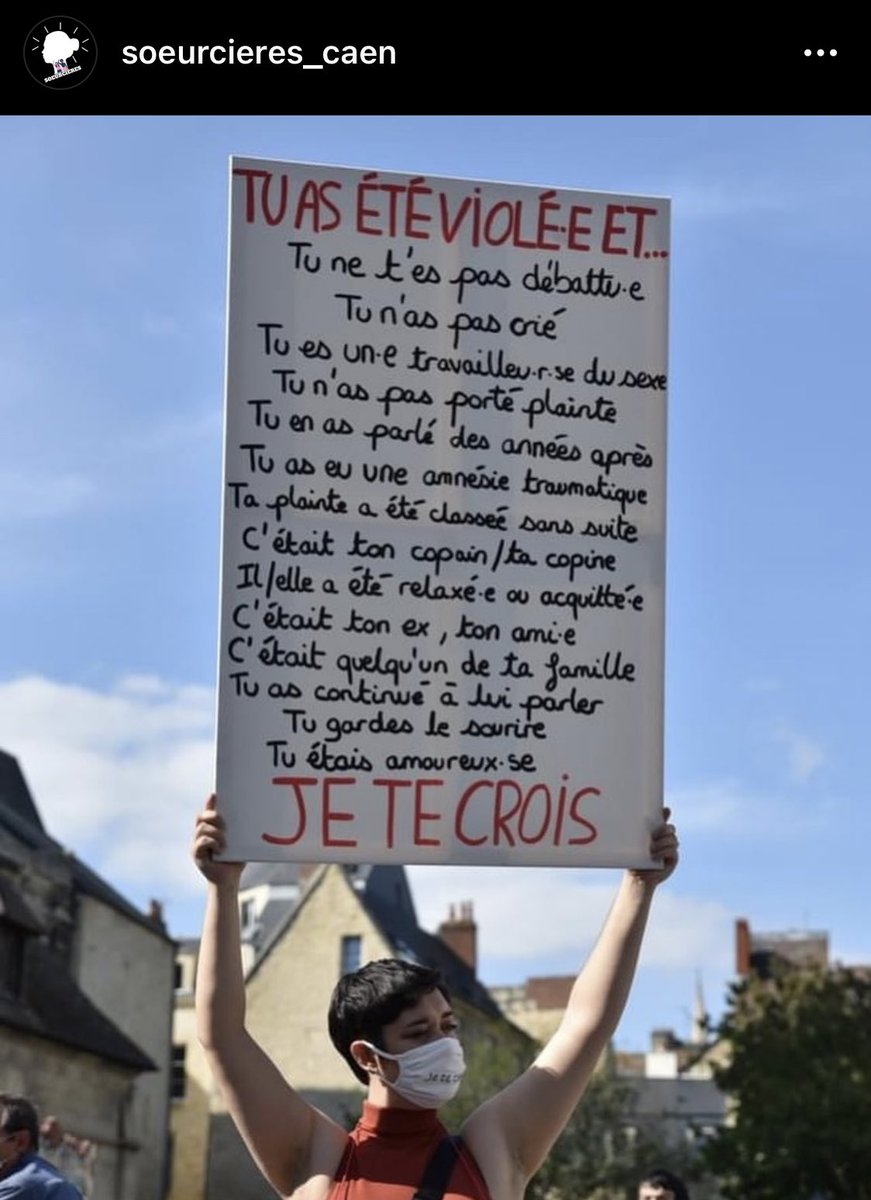 soeurcieres_caen
SOEURCIERES
TU AS ÉTÉ VIOLÉ·E ET...
Tu ne t'es pas débattu·e
Tu n'as pas crié
Tu es un·e travailleu·r·se du sexe
Tu n'as pas porté plainte
Tu en as parlé des années après
Tu as eu une amnésie traumatique
Ta plainte a été classeé sans suite
C'était ton copain/ta copine
Il/elle a été relaxé·e ou acquitté·e
C'était ton ex, ton ami·e
C'était quelqu'un de ta famille
Tu as continué à lui parler
Tu gardes le sourire
Tu étais amoureux·se
JE TE CROIS